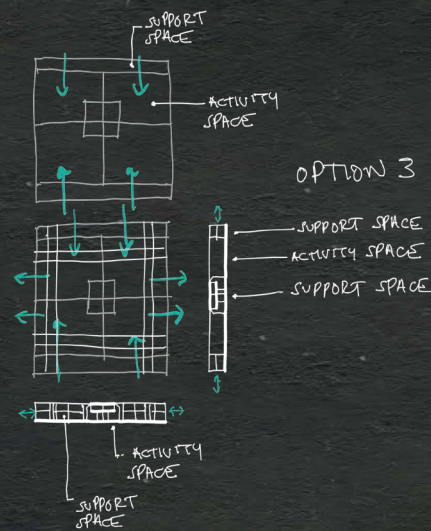 SUPPORT
SPACE
ACTIVITY
SPACE
OPTION 3
SUPPORT SPACE
ACTIVITY SPACE
SUPPORT SPACE
ACTIVITY
SPACE
SUPPORT
SPACE